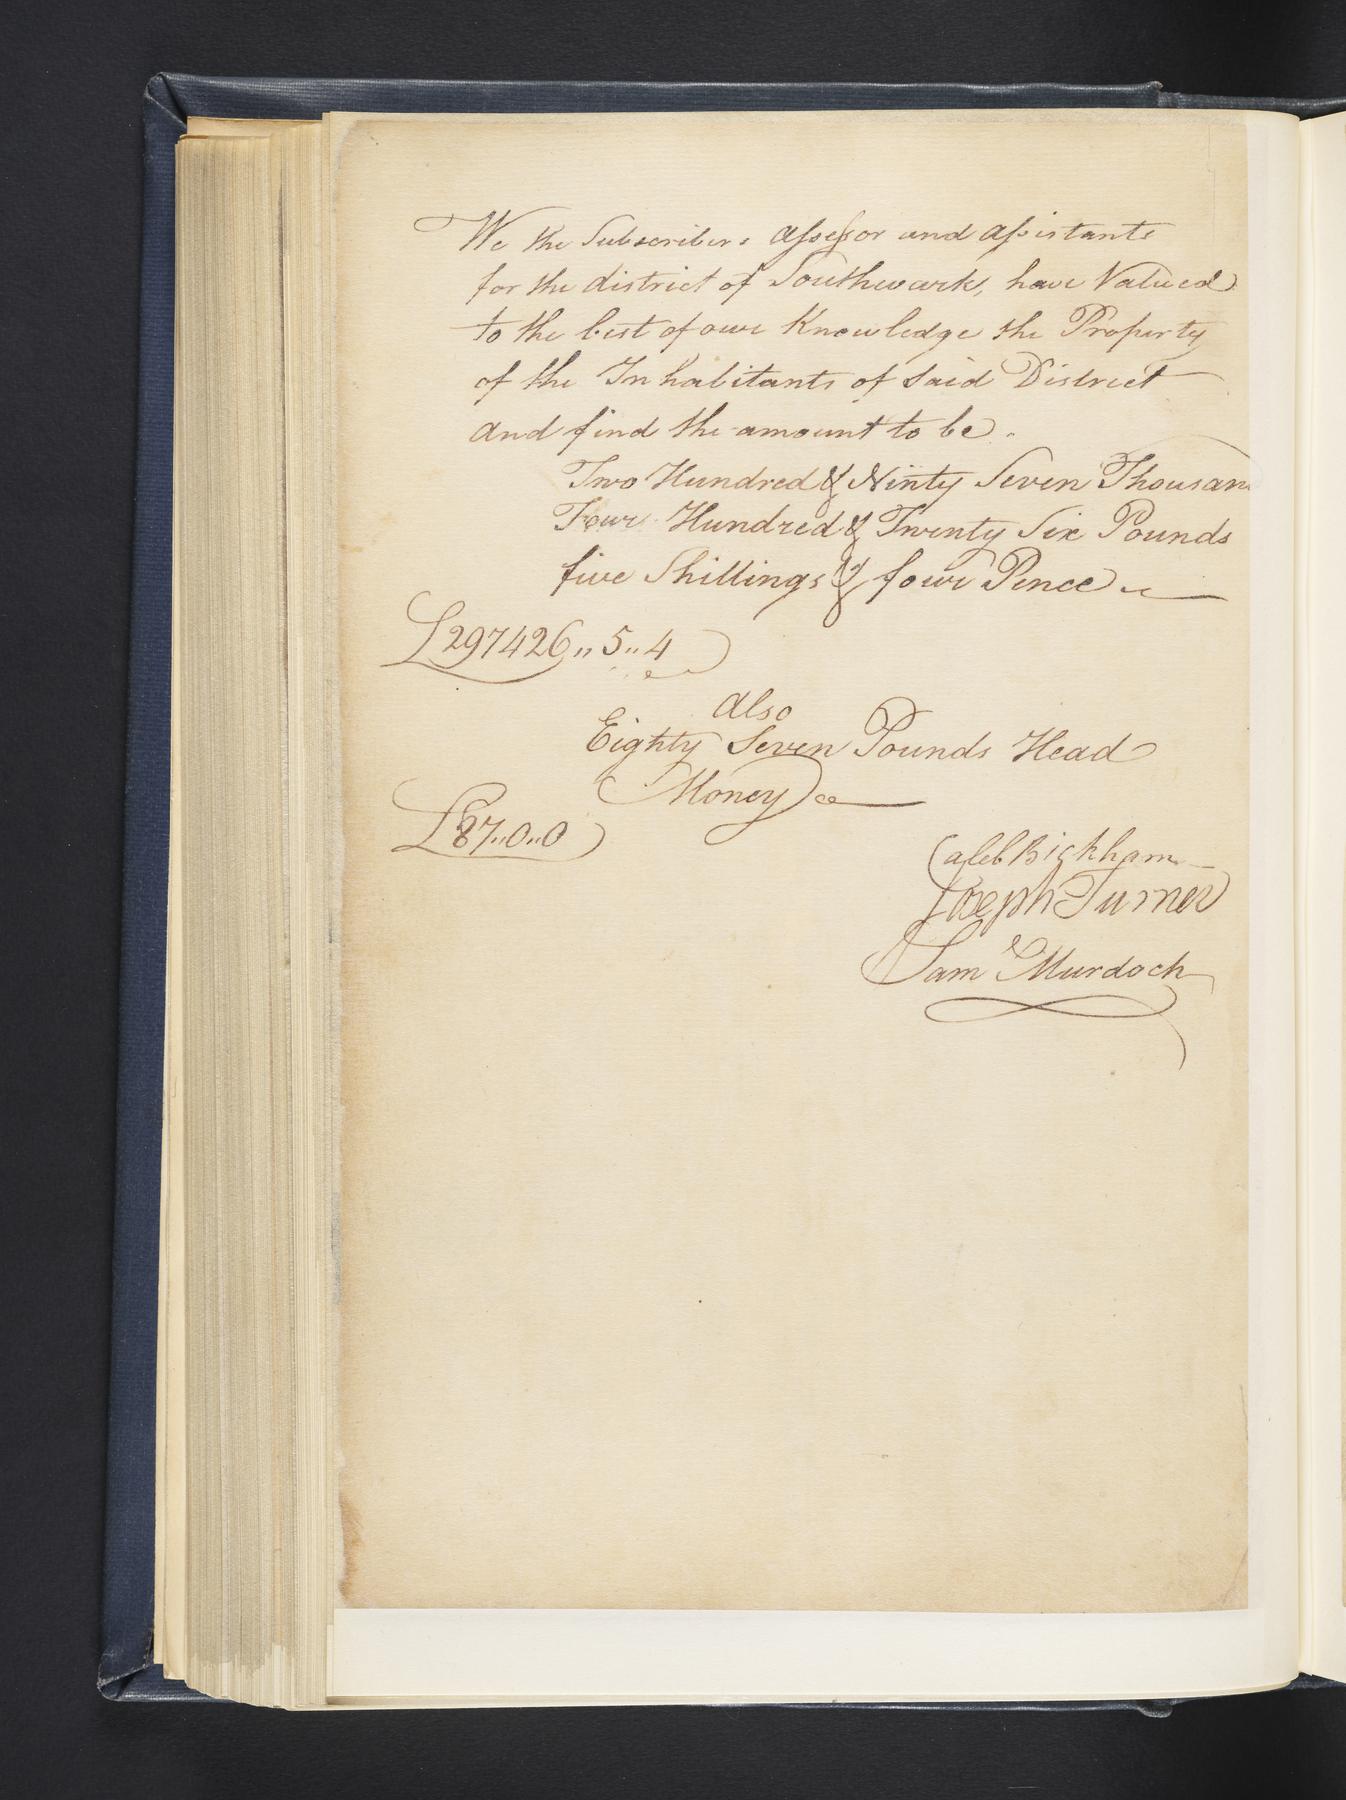 We the Subscribers assessor and assistants
for the district of Southwark, have Valued
to the best of our Knowledge the Property
of the Inhabitants of said District
and find the amount to be
Two Hundred & Ninty Seven Thousan
Four Hundred & Twenty Six Pounds
five Shillings & four Pence
£297426,,5,,4
also
Eighty Seven Pounds Head
Money
£87,,0,,0
Caleb Bickham
Joseph Turner
Sam Murdoch